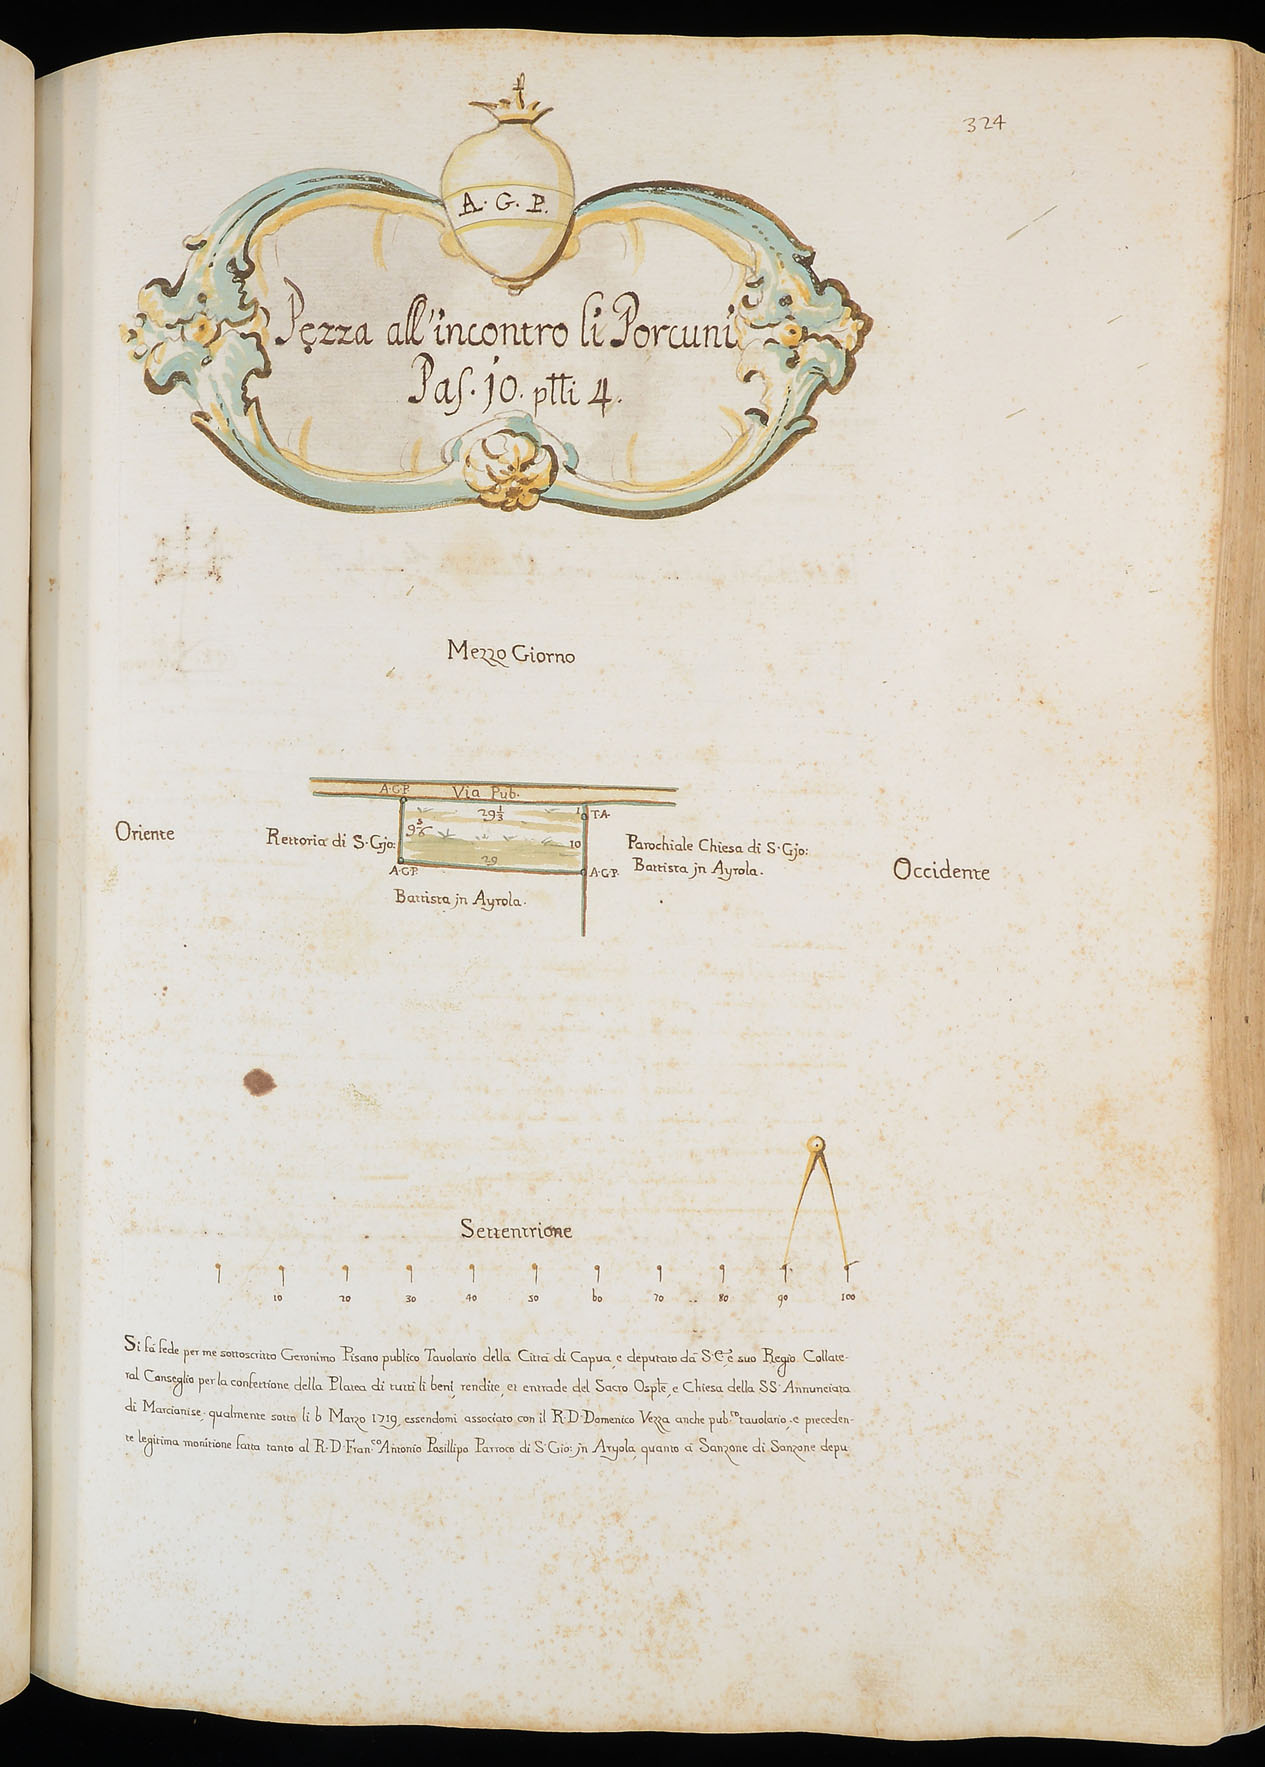 324
A. G. P.
Pezza all'incontro li Porcuni
Pas. jo. ptti 4.
Mezzo Giorno
A.G.P. Via Pub.
29 1/3
1 T.A.
9 5/6
Oriente
Rettoria di S. Gjo:
10
Parochiale Chiesa di S. Gjo:
Battista jn Ayrola.
Occidente
29
A.G.P.
A.G.P.
Battista jn Ayrola.
Settentrione
10 20 30 40 50 60 70 80 90 100
Si fà fede per me sottoscritto Geronimo Pisano publico Tauolario della Città di Capua, e deputato dà S. E., e suo Regio Collate-
ral Conseglio per la confettione della Platea di tutti li beni, rendite, et entrade del Sacro Ospte, e Chiesa della SS. Annunciata
di Marcianise, qualmente sotto li 6 Marzo 1719, essendomi associato con il R. D. Domenico Vezza anche pub.co tauolario, e preceden-
te legitima monitione fatta tanto al R. D. Fran.co Antonio Posillipo Parroco di S. Gio: jn Aryola, quanto à Sanzone di Sanzone depu